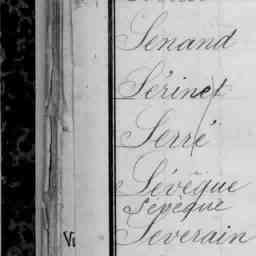 Senand
Sérinet
Serré
Sévêque
Sevêque
Severain